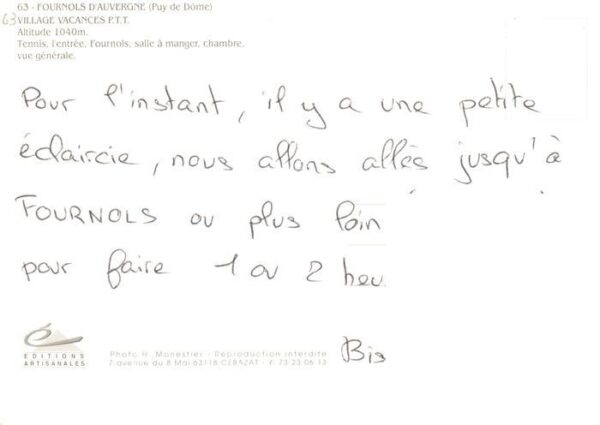 63 - FOURNOLS D'AUVERGNE (Puy de Dôme)
63 VILLAGE VACANCES P.T.T.
Altitude 1040m.
Tennis, l'entrée, Fournols, salle à manger, chambre,
vue générale.
Pour l'instant, il y a une petite
éclaircie, nous allons allés jusqu'à
FOURNOLS ou plus loin
pour faire 1 ou 2 heu
EDITIONS
ARTISANALES
Photo H. Monestier - Reproduction interdite
7 avenue du 8 Mai 63118 CEBAZAT - T. 73 23 06 13
Bis